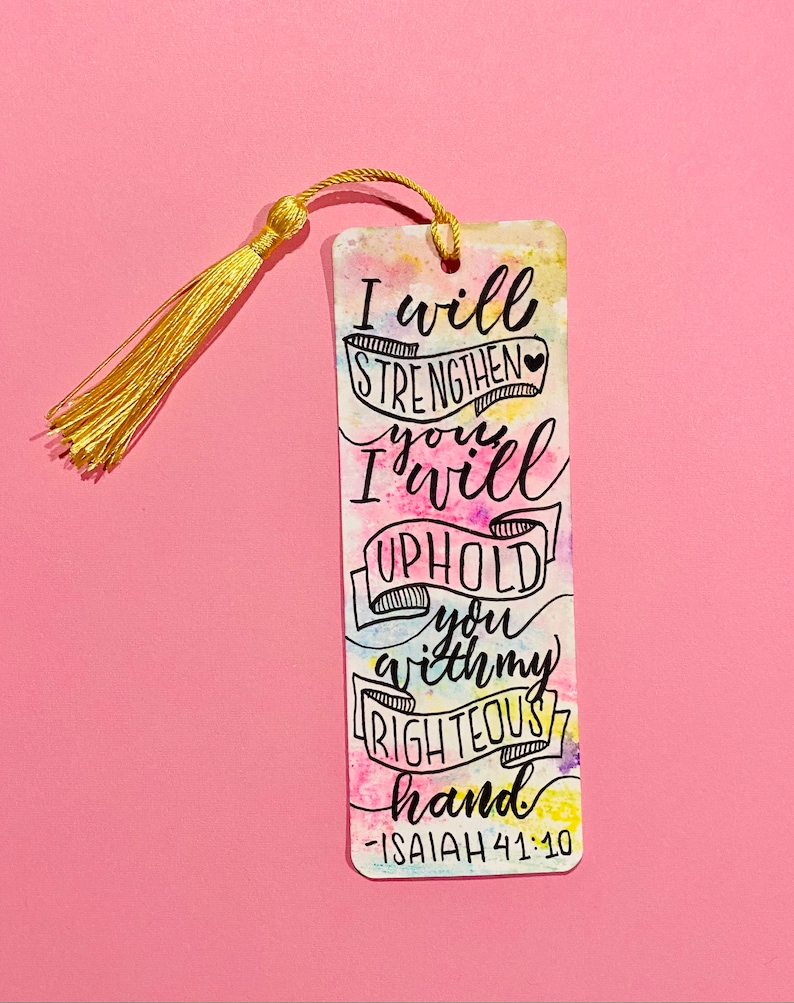 I will
STRENGTHEN
you,
I will
UPHOLD
you
with my
RIGHTEOUS
hand.
-ISAIAH 41:10